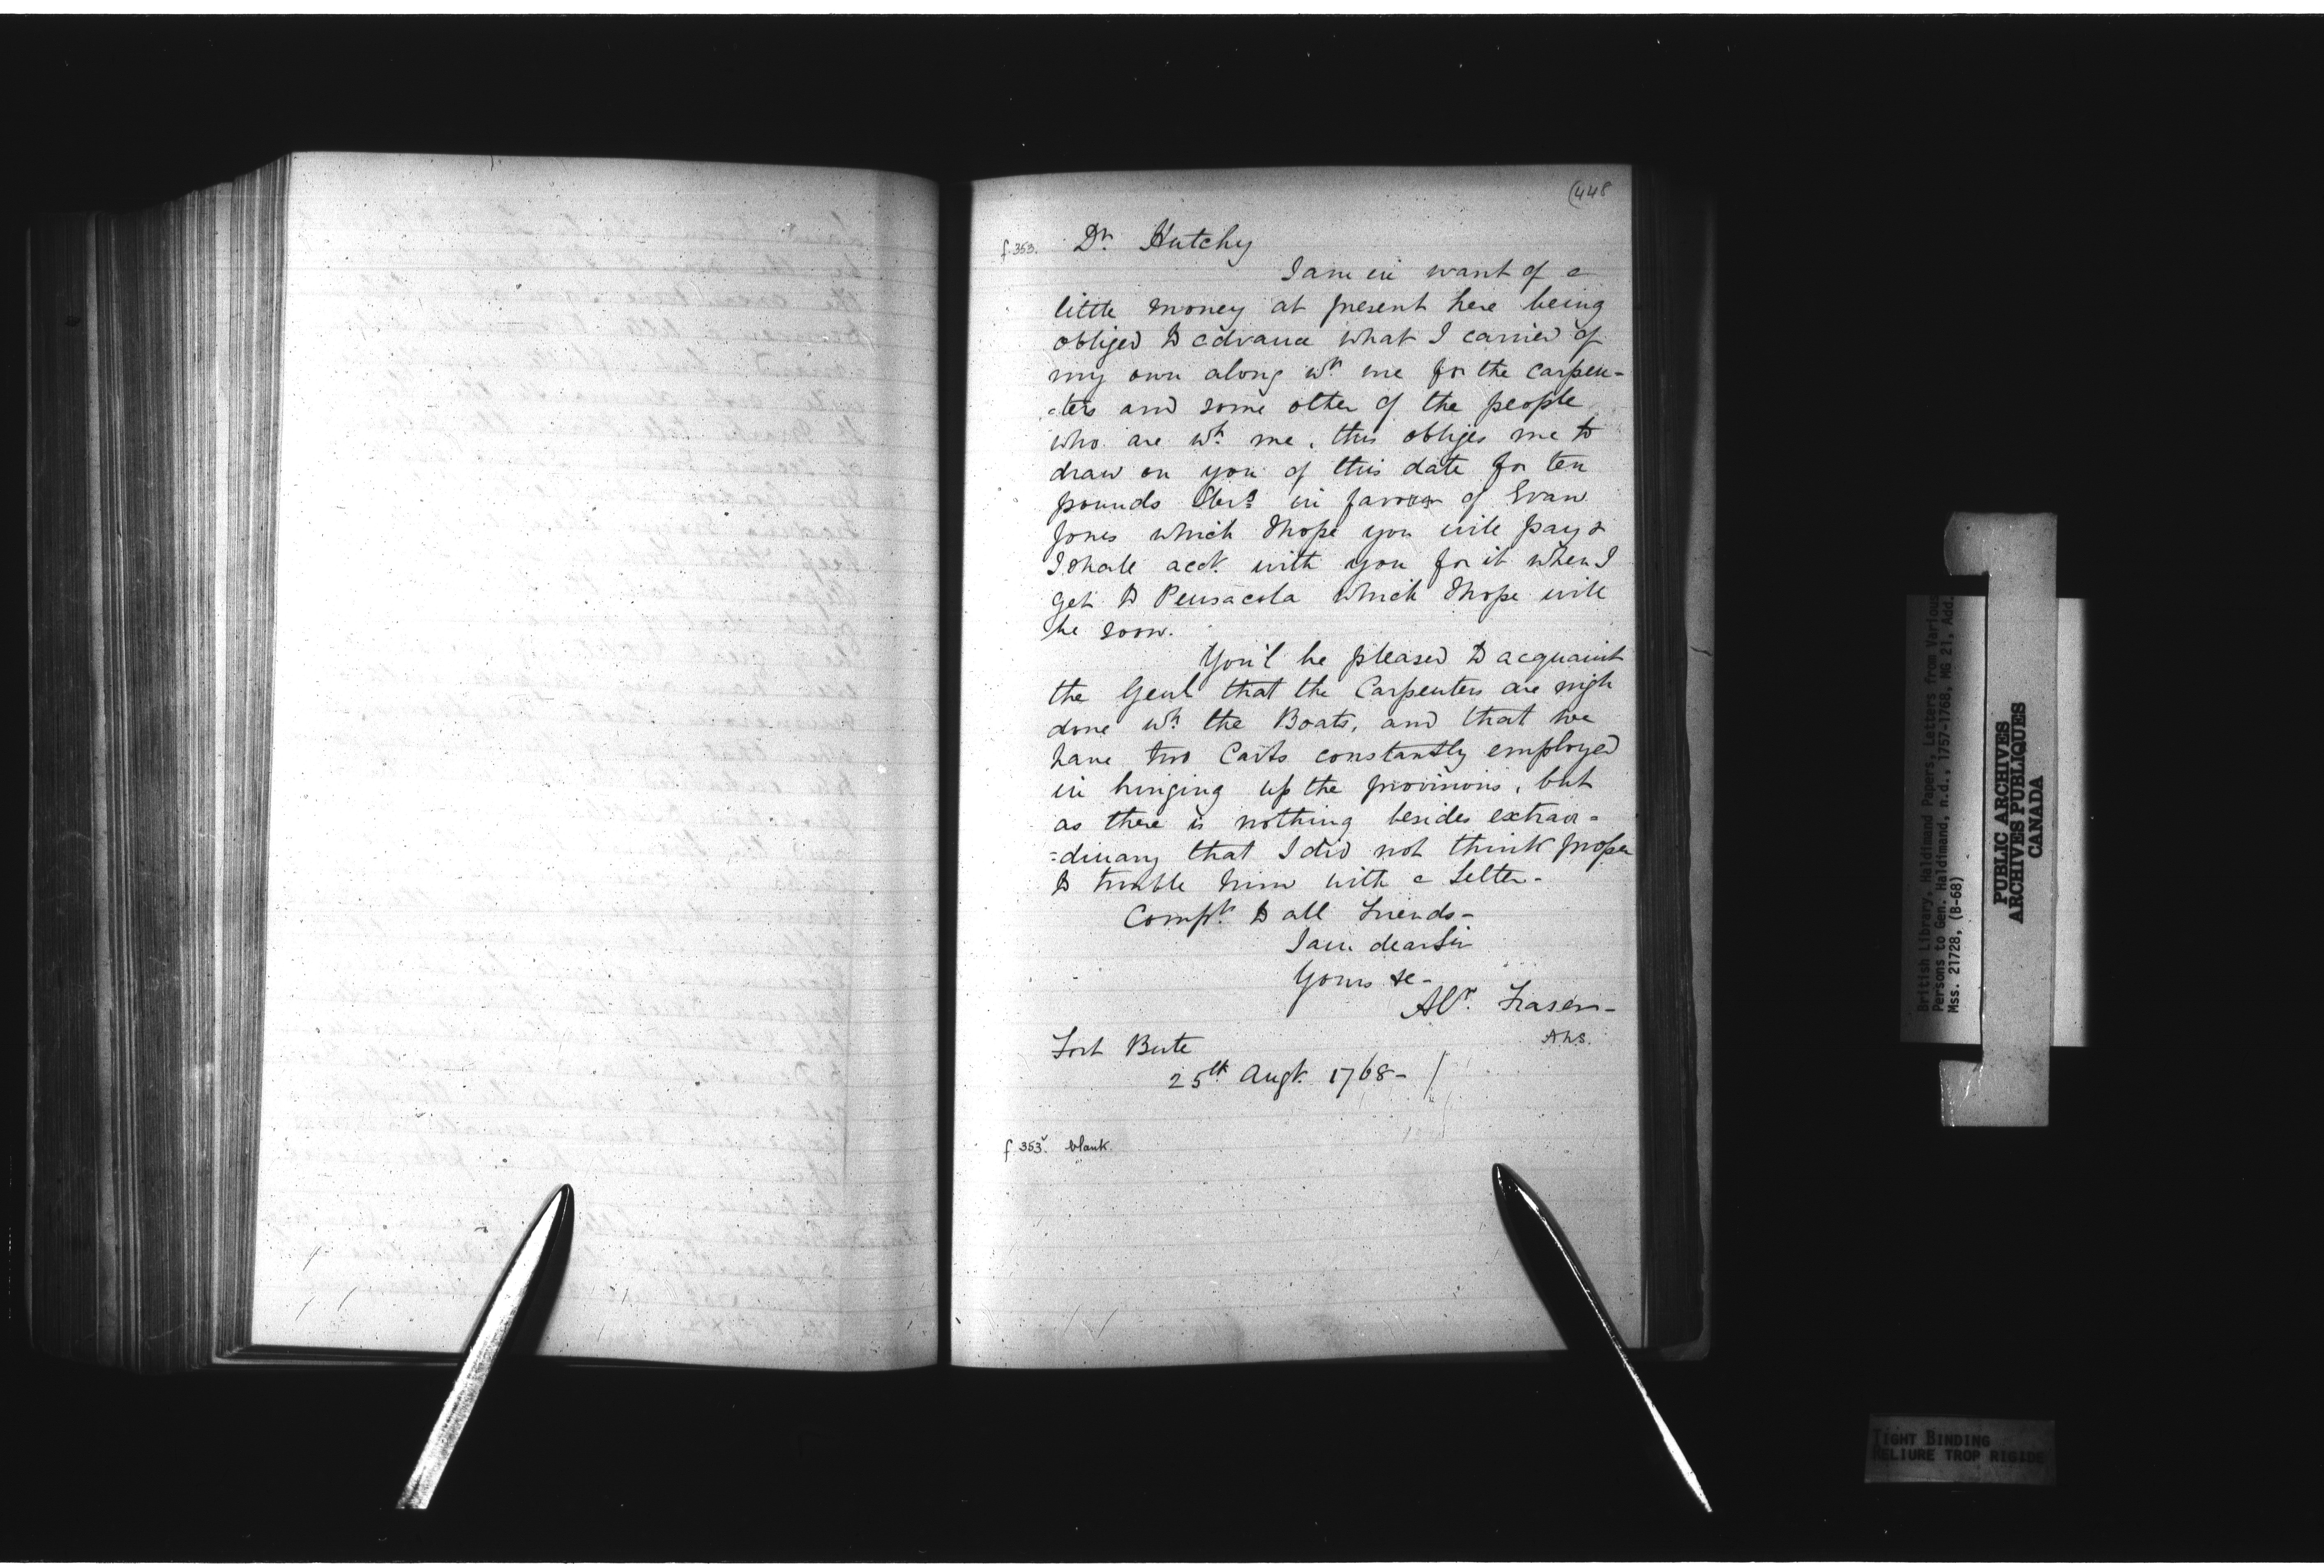 (448
f. 353. Dr. Hutchy
I am in want of a
little money at present here being
obliged to advance what I carried of
my own along wh. me for the carpen-
-ters and some other of the people
who are wh. me, this obliges me to
draw on you of this date for ten
pounds Sterg. in favour of Evan
Jones which I hope you will pay &
I shall acct. with you for it when I
get to Pensacola which I hope will
be soon.
You'l be pleased to acquaint
the Genl that the Carpenters are nigh
done wh. the Boats, and that we
have two Carts constantly employed
in bringing up the provisions, but
as there is nothing besides extraor=
=dinary that I did not think proper
to trouble him with a Letter-
Compts. to all friends-
I am dear Sir
Yours &c-
Alr. Fraser-
A.h.S.
Fort Bute
25th Augt. 1768- /
f 353v. blank.
British Library, Haldimand Papers, Letters from Various
Persons to Gen. Haldimand, n.d., 1757-1768, MG 21, Add.
Mss. 21728, (B-68)
PUBLIC ARCHIVES
ARCHIVES PUBLIQUES
CANADA
TIGHT BINDING
RELIURE TROP RIGIDE